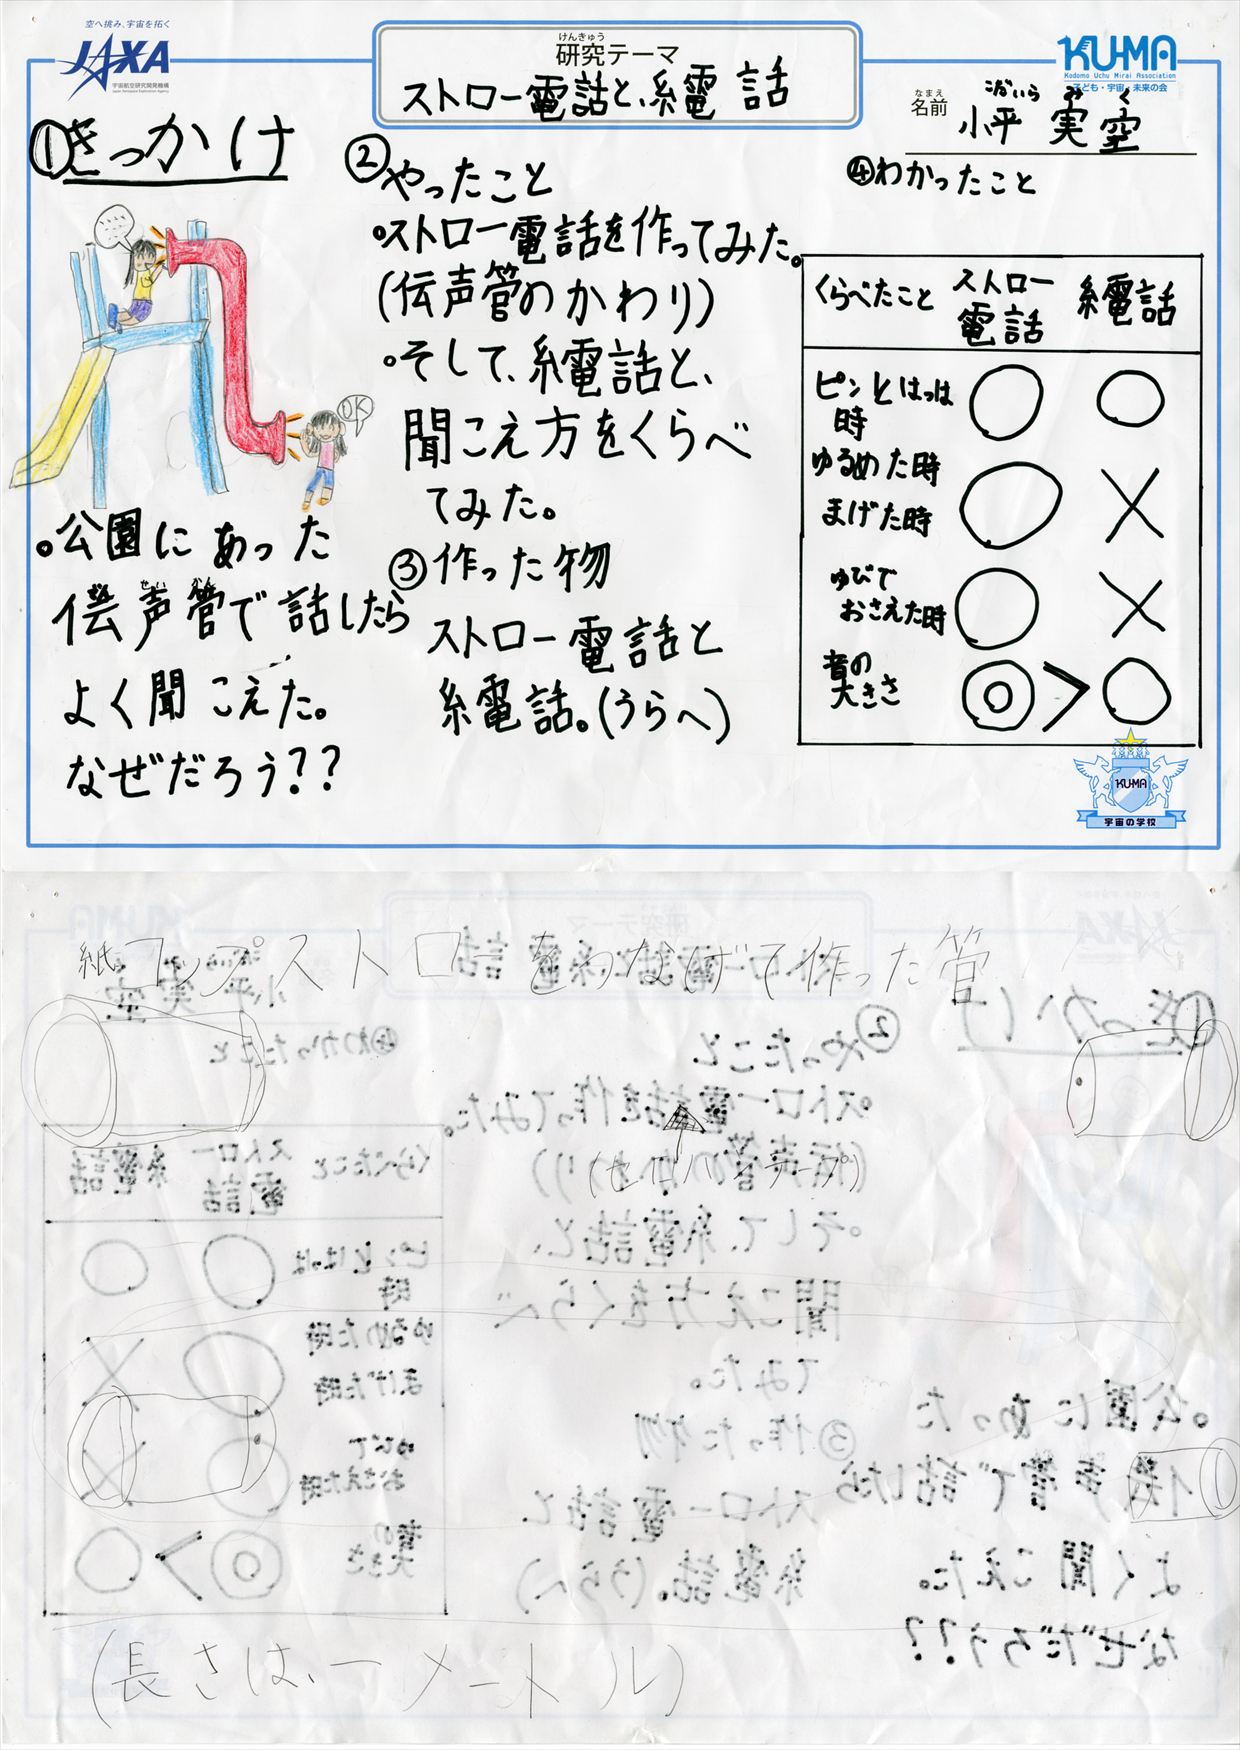 空へ挑み、宇宙を拓く
JAXA
宇宙航空研究開発機構
Japan Aerospace Exploration Agency
けんきゅう
研究テーマ
ストロー電話と、糸電話
KU-MA
Kodomo Uchu Mirai Association
子ども・宇宙・未来の会
なまえ
名前
こだいら みく
小平 実空
①きっかけ
OK
。公園にあった
せい
伝声管で話したら
よく聞こえた。
なぜだろう??
②
やったこと
。ストロー電話を作ってみた。
(伝声管のかわり)
。そして、糸電話と、
聞こえ方をくらべ
てみた。
③作った物
ストロー電話と
糸電話。(うらへ)
④わかったこと
くらべたこと ストロー電話 糸電話
ピンとはっは時 ○ ○
ゆるめた時
まげた時 ○ ×
ゆびで
おさえた時 ○ ×
音の
大きさ ◎ > ○
KU-MA
宇宙の学校
紙コップ ストローをつなげて作った管
(セロハンテープ)
(長さは、一メートル)